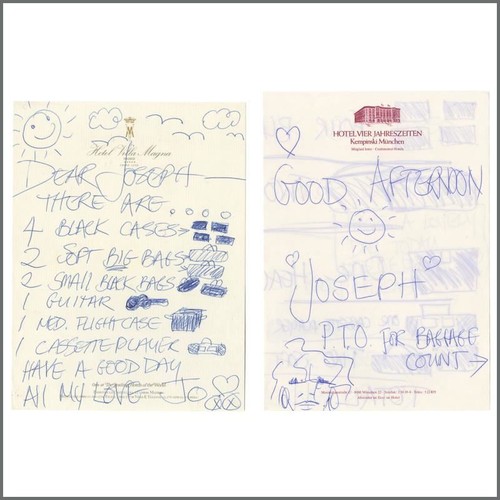 Hotel Villa Magna
DEAR JOSEPH
THERE ARE....
4 BLACK CASES
2 SOFT BIG BAGS
2 SMALL BLACK BAGS
1 GUITAR
1 MED. FLIGHTCASE
1 CASSETTE PLAYER
HAVE A GOOD DAY
All MY LOVE
HOTEL VIER JAHRESZEITEN
Kempinski München
GOOD AFTERNOON
JOSEPH
P.T.O. FOR BAGGAGE
COUNT